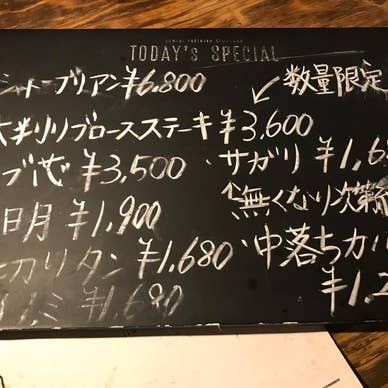 TODAY's SPECIAL
シャトーブリアン ¥6.800
数量限定
大判リブロースステーキ ¥3,600
ブ芯 ¥3,500
サガリ ¥1,6
無くなり次第
¥1,900
切りタン ¥1,680
中落ちカ
ミ ¥1.680
¥1.